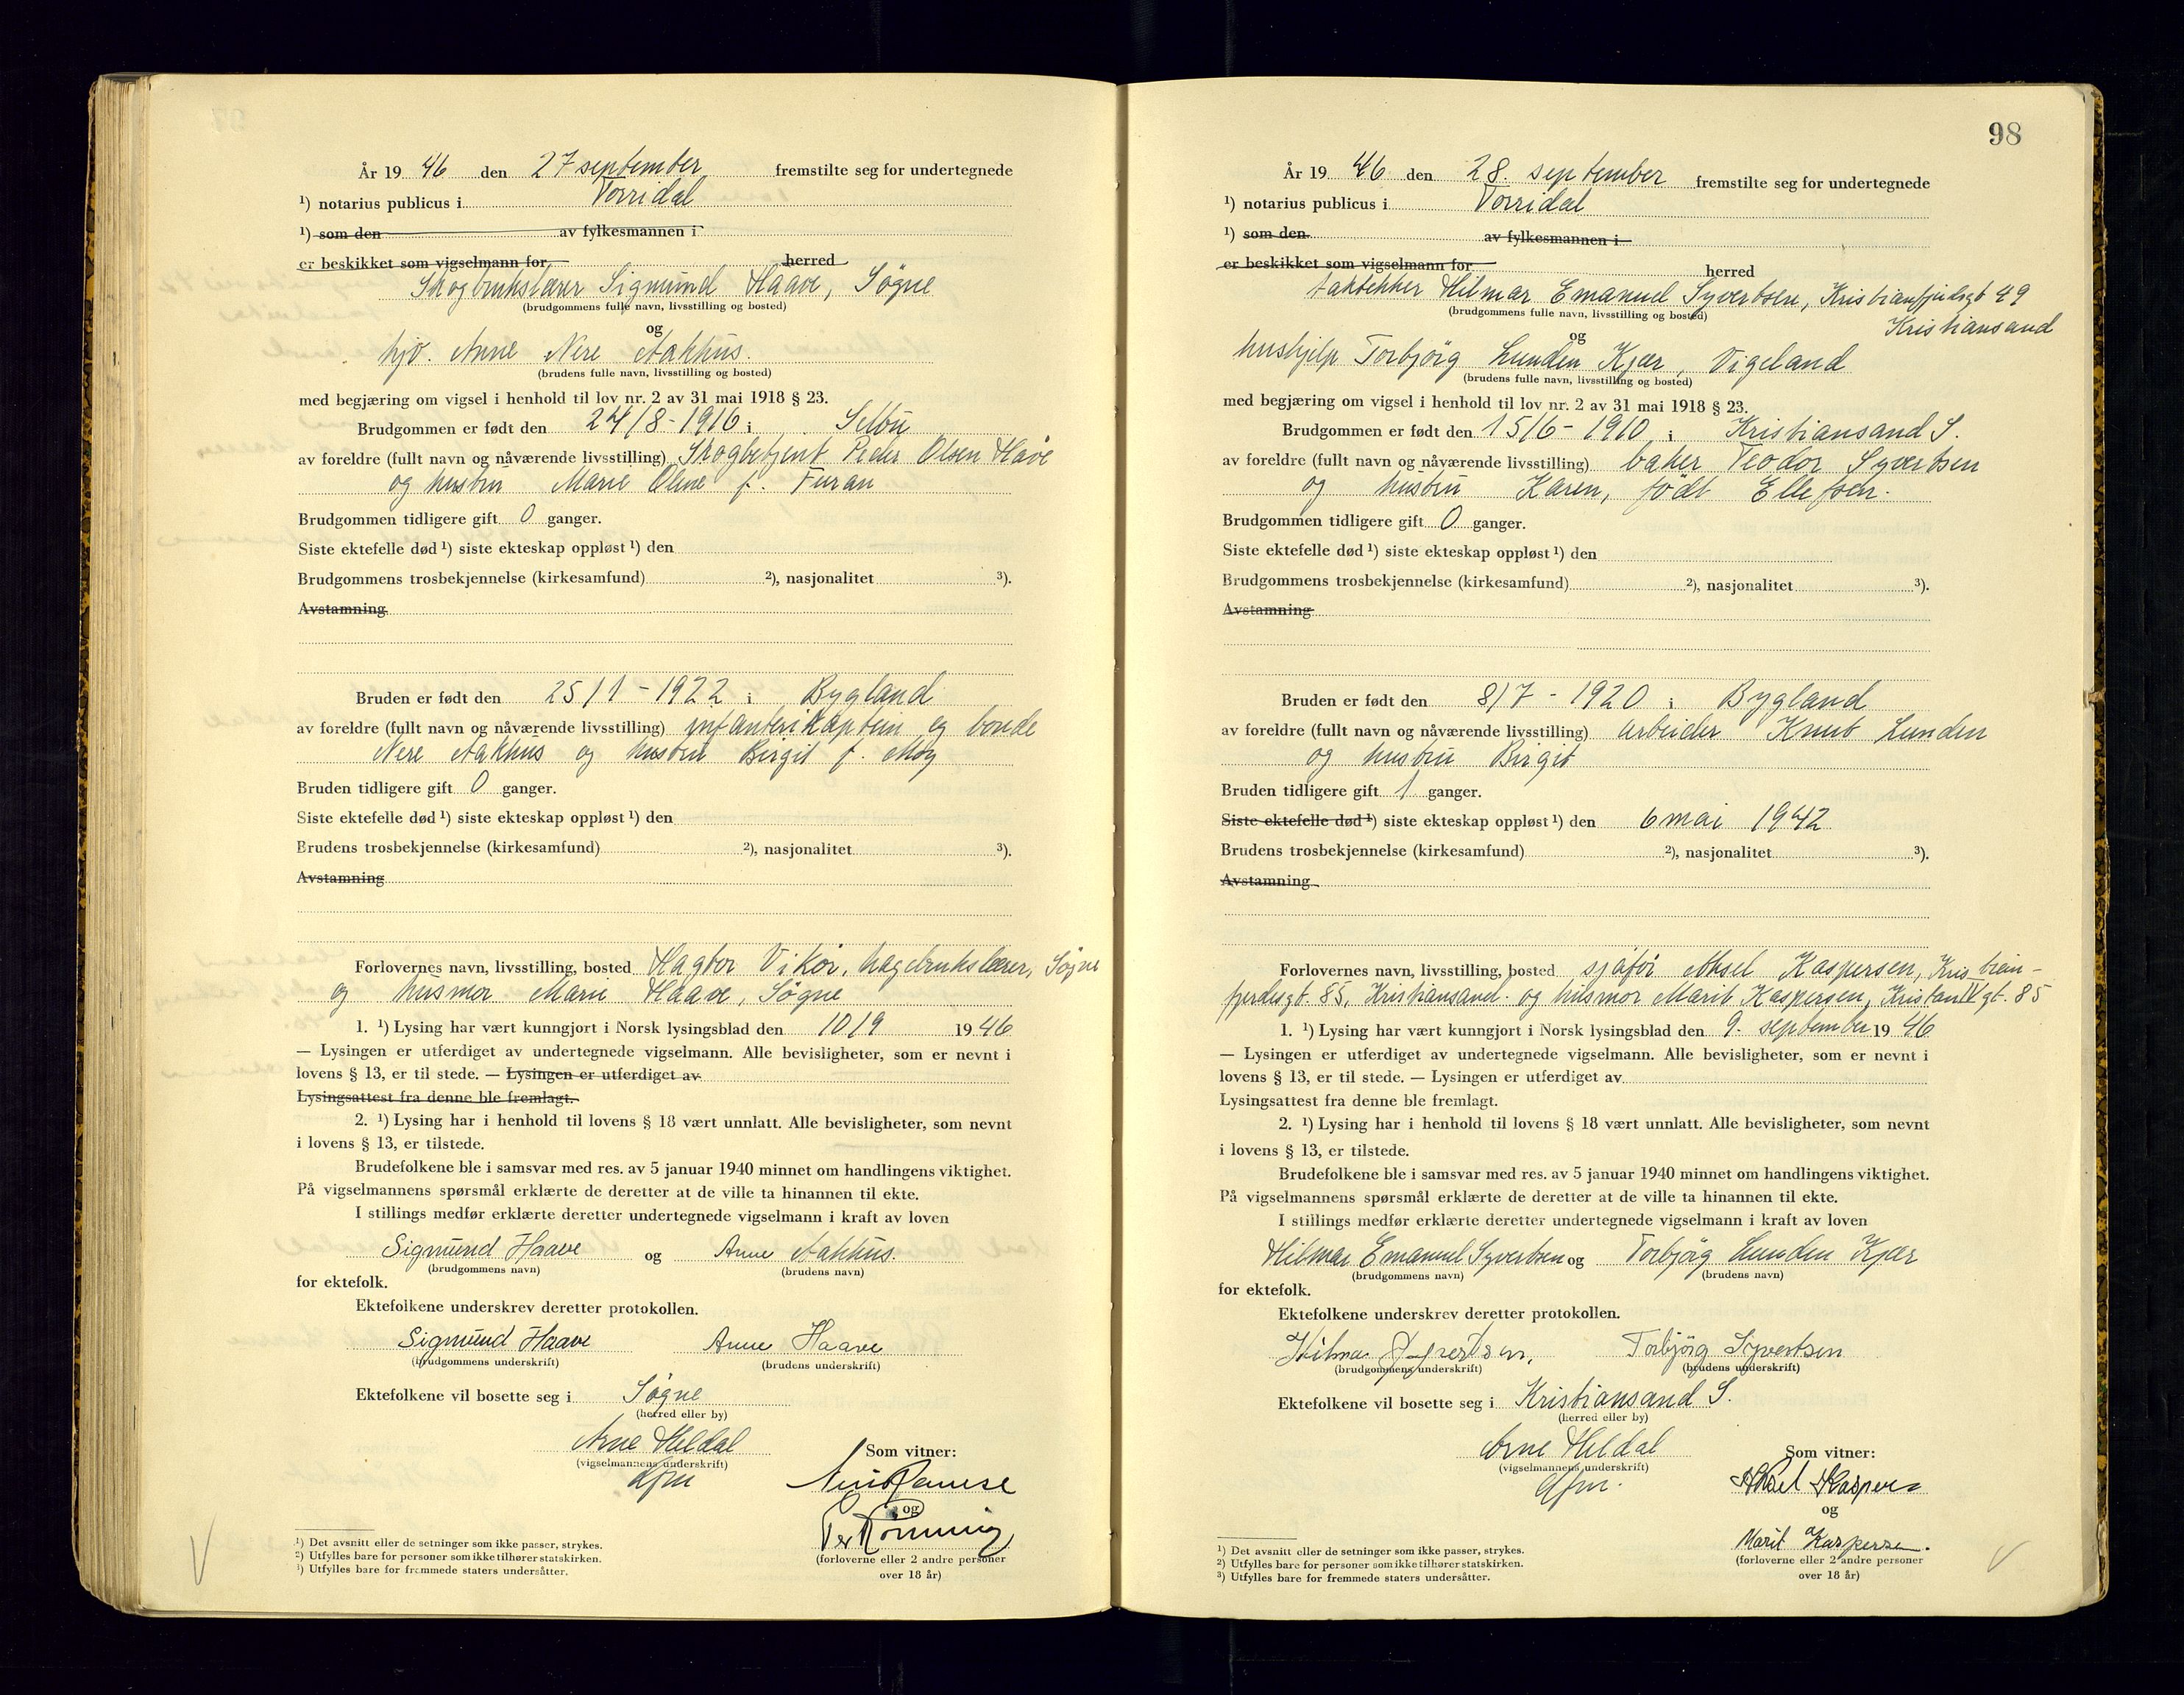 År 19 46 den 27 september fremstilte seg for undertegnede
¹) notarius publicus i Torridal
¹) som den av fylkesmannen i
er beskikket som vigselmann for herred
Skogbrukslærer Sigmund Haave, Søgne
(brudgommens fulle navn, livsstilling og bosted)
og
hjv. Anne Nere Aakhus.
(brudens fulle navn, livsstilling og bosted)
med begjæring om vigsel i henhold til lov nr. 2 av 31 mai 1918 § 23.
Brudgommen er født den 24/8-1916 i Selbu
av foreldre (fullt navn og nåværende livsstilling) Skogbetjent Peder Olsen Håve
og hustru Marie Oline f. Furan
Brudgommen tidligere gift 0 ganger.
Siste ektefelle død ¹) siste ekteskap oppløst ¹) den
Brudgommens trosbekjennelse (kirkesamfund) ²), nasjonalitet ³).
Avstamning
Bruden er født den 25/1-1922 i Bygland
av foreldre (fullt navn og nåværende livsstilling) infanterikaptein og bonde
Nere Aakhus og hustru Birgit f. Moy
Bruden tidligere gift 0 ganger.
Siste ektefelle død ¹) siste ekteskap oppløst ¹) den
Brudens trosbekjennelse (kirkesamfund) ²), nasjonalitet ³).
Avstamning
Forlovernes navn, livsstilling, bosted Hagbor Vikør, hagebrukslærer, Søgne
og husmor Marie Haave, Søgne
1. ¹) Lysing har vært kunngjort i Norsk lysingsblad den 10/9 1946
— Lysingen er utferdiget av undertegnede vigselmann. Alle bevisligheter, som er nevnt i
lovens § 13, er til stede. — Lysingen er utferdiget av
Lysingsattest fra denne ble fremlagt.
2. ¹) Lysing har i henhold til lovens § 18 vært unnlatt. Alle bevisligheter, som nevnt
i lovens § 13, er tilstede.
Brudefolkene ble i samsvar med res. av 5 januar 1940 minnet om handlingens viktighet.
På vigselmannens spørsmål erklærte de deretter at de ville ta hinannen til ekte.
I stillings medfør erklærte deretter undertegnede vigselmann i kraft av loven
Sigmund Haave og Anne Aakhus.
(brudgommens navn) (brudens navn)
for ektefolk.
Ektefolkene underskrev deretter protokollen.
Sigmund Haave Anne Haave
(brudgommens underskrift) (brudens underskrift)
Ektefolkene vil bosette seg i Søgne
(herred eller by)
Arne Heldal
(vigselmannens underskrift)
Som vitner:
og
(forloverne eller 2 andre personer
over 18 år)
¹) Det avsnitt eller de setninger som ikke passer, strykes.
²) Utfylles bare for personer som ikke tilhører statskirken.
³) Utfylles bare for fremmede staters undersåtter.
98
År 19 46 den 28. september fremstilte seg for undertegnede
¹) notarius publicus i Torridal
¹) som den av fylkesmannen i
er beskikket som vigselmann for herred
taktekker Hilmar Emanuel Syvertsen, Kristianfjerdsgt 49
Kristiansand
(brudgommens fulle navn, livsstilling og bosted)
og
hushjelp Torbjörg Lunden Kjær, Vigeland
(brudens fulle navn, livsstilling og bosted)
med begjæring om vigsel i henhold til lov nr. 2 av 31 mai 1918 § 23.
Brudgommen er født den 15/6-1910 i Kristiansand S.
av foreldre (fullt navn og nåværende livsstilling) baker Teodor Syvertsen
og hustru Karen, født Ellefsen.
Brudgommen tidligere gift 0 ganger.
Siste ektefelle død ¹) siste ekteskap oppløst ¹) den
Brudgommens trosbekjennelse (kirkesamfund) ²), nasjonalitet ³).
Avstamning
Bruden er født den 8/7-1920 i Bygland
av foreldre (fullt navn og nåværende livsstilling) arbeider Knut Lunden
og hustru Birgit
Bruden tidligere gift 1 ganger.
Siste ektefelle død ¹) siste ekteskap oppløst ¹) den 6 mai 1942
Brudens trosbekjennelse (kirkesamfund) ²), nasjonalitet ³).
Avstamning
Forlovernes navn, livsstilling, bosted sjåfør Aksel Kaspersen, Kristian-
fjerdesgt. 85, Kristiansand. og husmor Marit Kaspersen, Kristan IV gt. 85
1. ¹) Lysing har vært kunngjort i Norsk lysingsblad den 9. september 19 46
— Lysingen er utferdiget av undertegnede vigselmann. Alle bevisligheter, som er nevnt i
lovens § 13, er til stede. — Lysingen er utferdiget av
Lysingsattest fra denne ble fremlagt.
2. ¹) Lysing har i henhold til lovens § 18 vært unnlatt. Alle bevisligheter, som nevnt
i lovens § 13, er tilstede.
Brudefolkene ble i samsvar med res. av 5 januar 1940 minnet om handlingens viktighet.
På vigselmannens spørsmål erklærte de deretter at de ville ta hinannen til ekte.
I stillings medfør erklærte deretter undertegnede vigselmann i kraft av loven
Hilmar Emanuel Syvertsen og Torbjörg Lunden Kjær
(brudgommens navn) (brudens navn)
for ektefolk.
Ektefolkene underskrev deretter protokollen.
Hilmar Syvertsen. Torbjörg Syvertsen
(brudgommens underskrift) (brudens underskrift)
Ektefolkene vil bosette seg i Kristiansand S.
(herred eller by)
Arne Heldal
(vigselmannens underskrift)
Som vitner:
Aksel Kaspersen
og
Marit Kaspersen.
(forloverne eller 2 andre personer
over 18 år)
¹) Det avsnitt eller de setninger som ikke passer, strykes.
²) Utfylles bare for personer som ikke tilhører statskirken.
³) Utfylles bare for fremmede staters undersåtter.